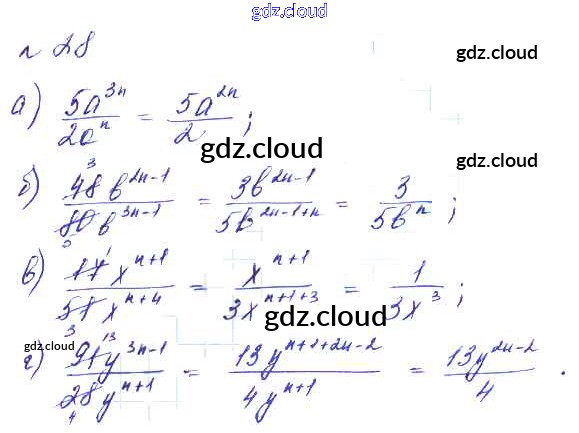 gdz.cloud
n 28
gdz.cloud
а) 5a^{3n}/2a^n = 5a^{2n}/2 ;
gdz.cloud
gdz.cloud
б) 48b^{2n-1}/80b^{3n-1} = 3b^{2n-1}/5b^{2n-1+n} = 3/5b^n ;
3
5
в) 17x^{n+1}/51x^{n+4} = x^{n+1}/3x^{n+1+3} = 1/3x^3 ;
1
3
gdz.cloud
gdz.cloud
г) 91y^{3n-1}/28y^{n+1} = 13y^{n+1+2n-2}/4y^{n+1} = 13y^{2n-2}/4 .
13
4
gdz.cloud